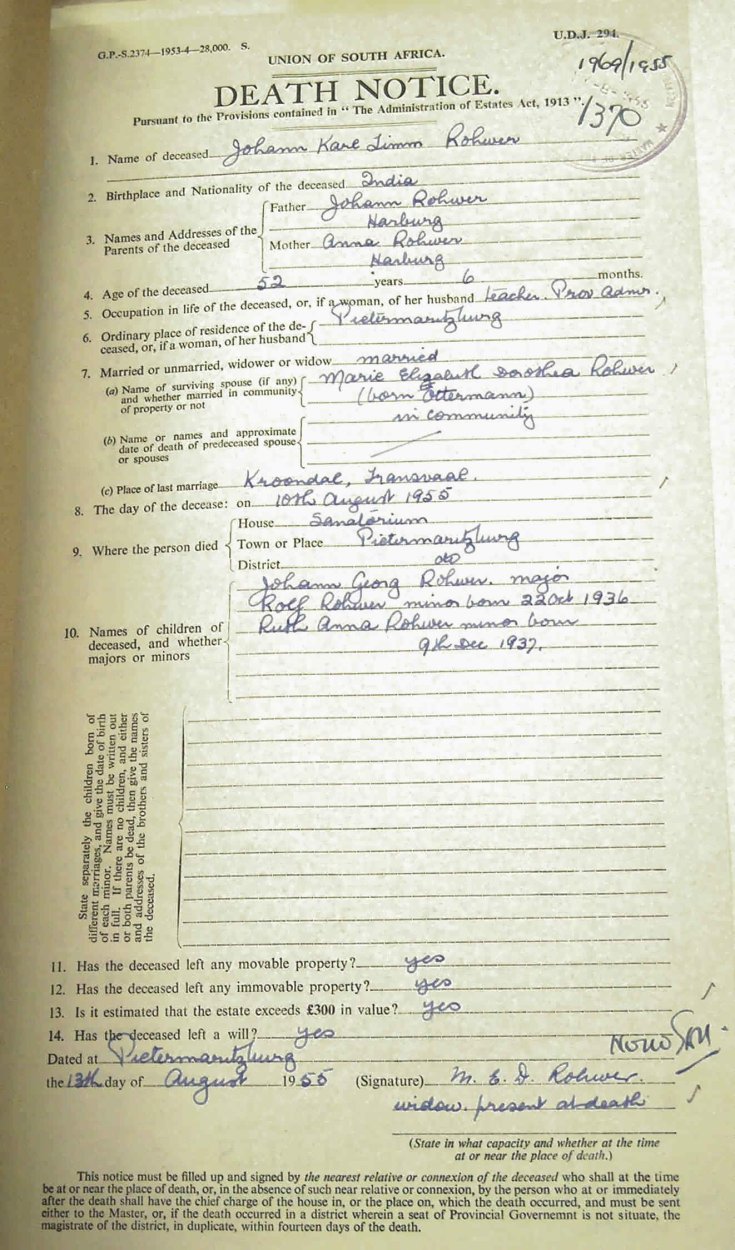 G.P.-S.2374—1953-4—28,000. S.
U.D.J. 294.
UNION OF SOUTH AFRICA.
1969/1955
DEATH NOTICE.
Pursuant to the Provisions contained in "The Administration of Estates Act, 1913".
/1370
1. Name of deceased Johann Karl Timm Rohwer
2. Birthplace and Nationality of the deceased India
3. Names and Addresses of the Parents of the deceased
Father Johann Rohwer
Harburg
Mother Anna Rohwer
Harburg
4. Age of the deceased 52 years 6 months.
5. Occupation in life of the deceased, or, if a woman, of her husband teacher. Prov Admr.
6. Ordinary place of residence of the de-
ceased, or, if a woman, of her husband
Pietermaritzburg
7. Married or unmarried, widower or widow married
(a) Name of surviving spouse (if any)
and whether married in community
of property or not
Marie Elizabeth Dorothea Rohwer
(born Ottermann)
in community
(b) Name or names and approximate
date of death of predeceased spouse
or spouses
(c) Place of last marriage Kroondal, Transvaal.
8. The day of the decease: on 10th August 1955
9. Where the person died
House Sanatorium
Town or Place Pietermaritzburg
District do
10. Names of children of
deceased, and whether
majors or minors
Johann Georg Rohwer. major
Rolf Rohwer minor born 22 Oct 1936
Ruth Anna Rohwer minor born
9th Dec 1937.
State separately the children born of
different marriages, and give the date of birth
of each minor. Names must be written out
in full. If there are no children, and either
or both parents be dead, then give the names
and addresses of the brothers and sisters of
the deceased.
11. Has the deceased left any movable property? yes
12. Has the deceased left any immovable property? yes
13. Is it estimated that the estate exceeds £300 in value? yes
14. Has the deceased left a will? yes
Dated at Pietermaritzburg
the 13th day of August 1955 (Signature) M. E. D. Rohwer.
widow. present at death
(State in what capacity and whether at the time
at or near the place of death.)
This notice must be filled up and signed by the nearest relative or connexion of the deceased who shall at the time
be at or near the place of death, or, in the absence of such near relative or connexion, by the person who at or immediately
after the death shall have the chief charge of the house in, or the place on, which the death occurred, and must be sent
either to the Master, or, if the death occurred in a district wherein a seat of Provincial Governemnt is not situate, the
magistrate of the district, in duplicate, within fourteen days of the death.